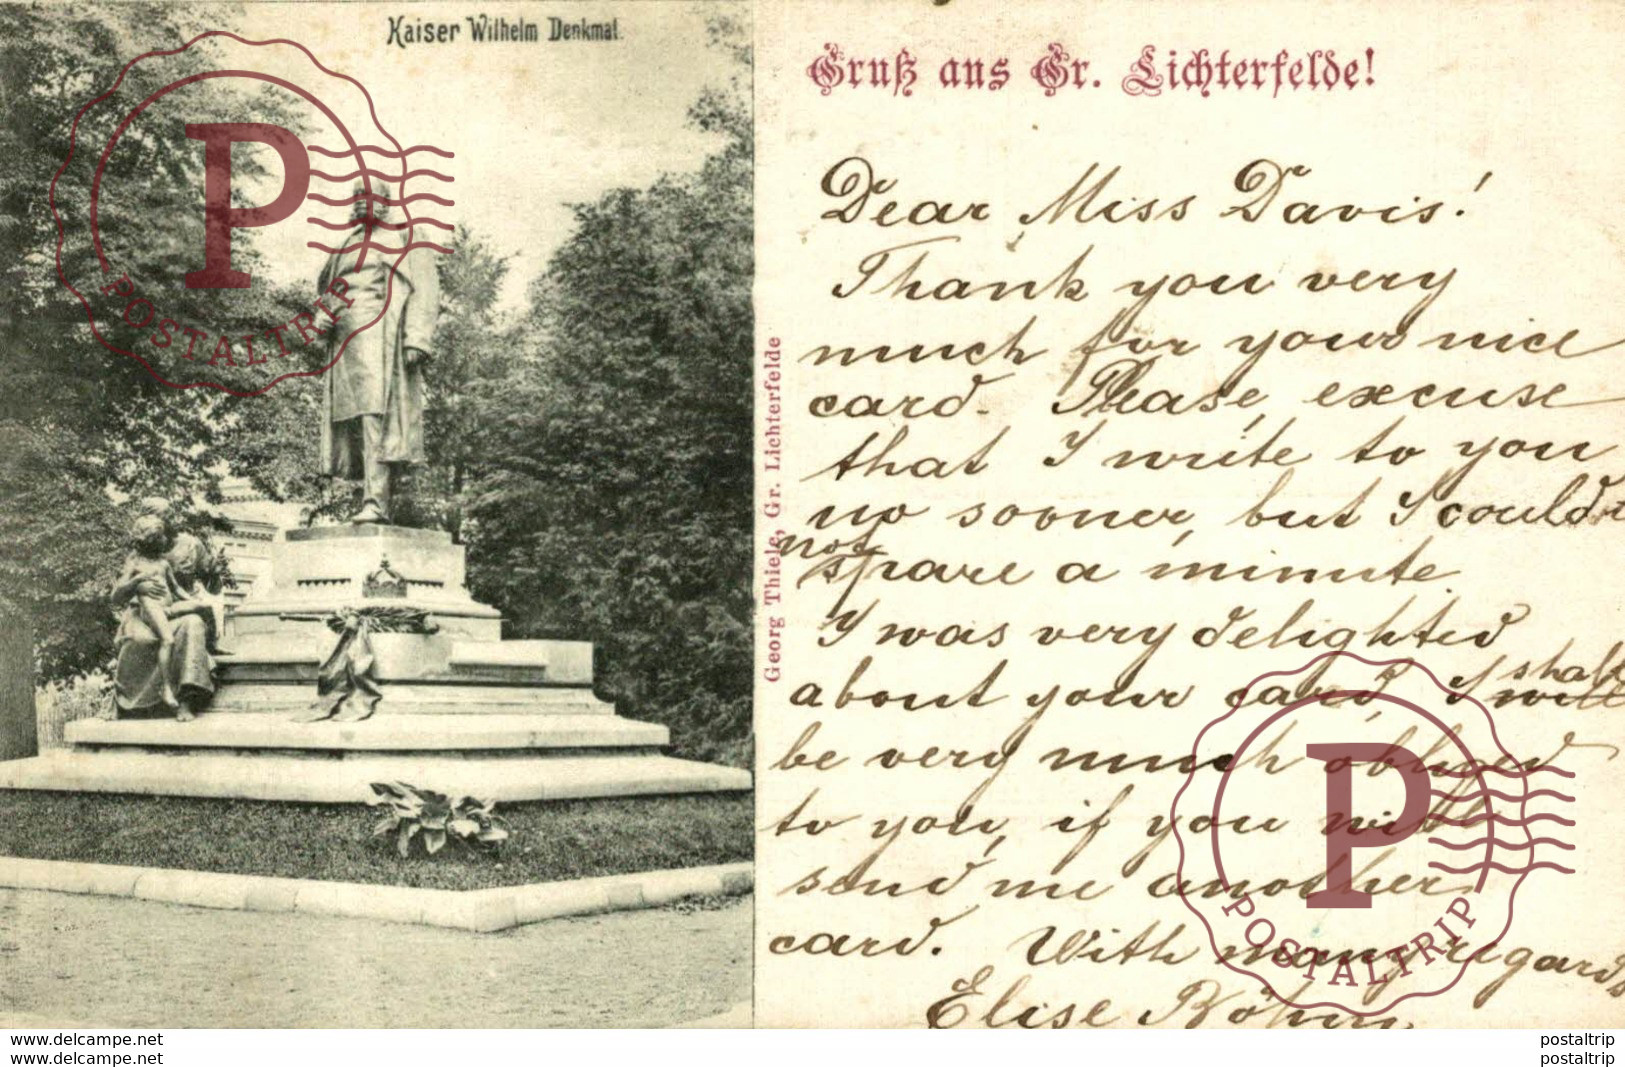 Kaiser Wilhelm Denkmal.
Gruß aus Gr. Lichterfelde!
Georg Thiele, Gr. Lichterfelde
Dear Miss Davis!
Thank you very
much for your nice
card. Please, excuse
that I write to you
no sooner, but I could
not
spare a minute.
I was very delighted
about your card, I shall
will
be very much obliged
to you, if you will
send me another
card. With many regards
Elise Böhm
P
POSTALTRIP
P
POSTALTRIP
delcampe.net
delcampe.net
postaltrip
postaltrip